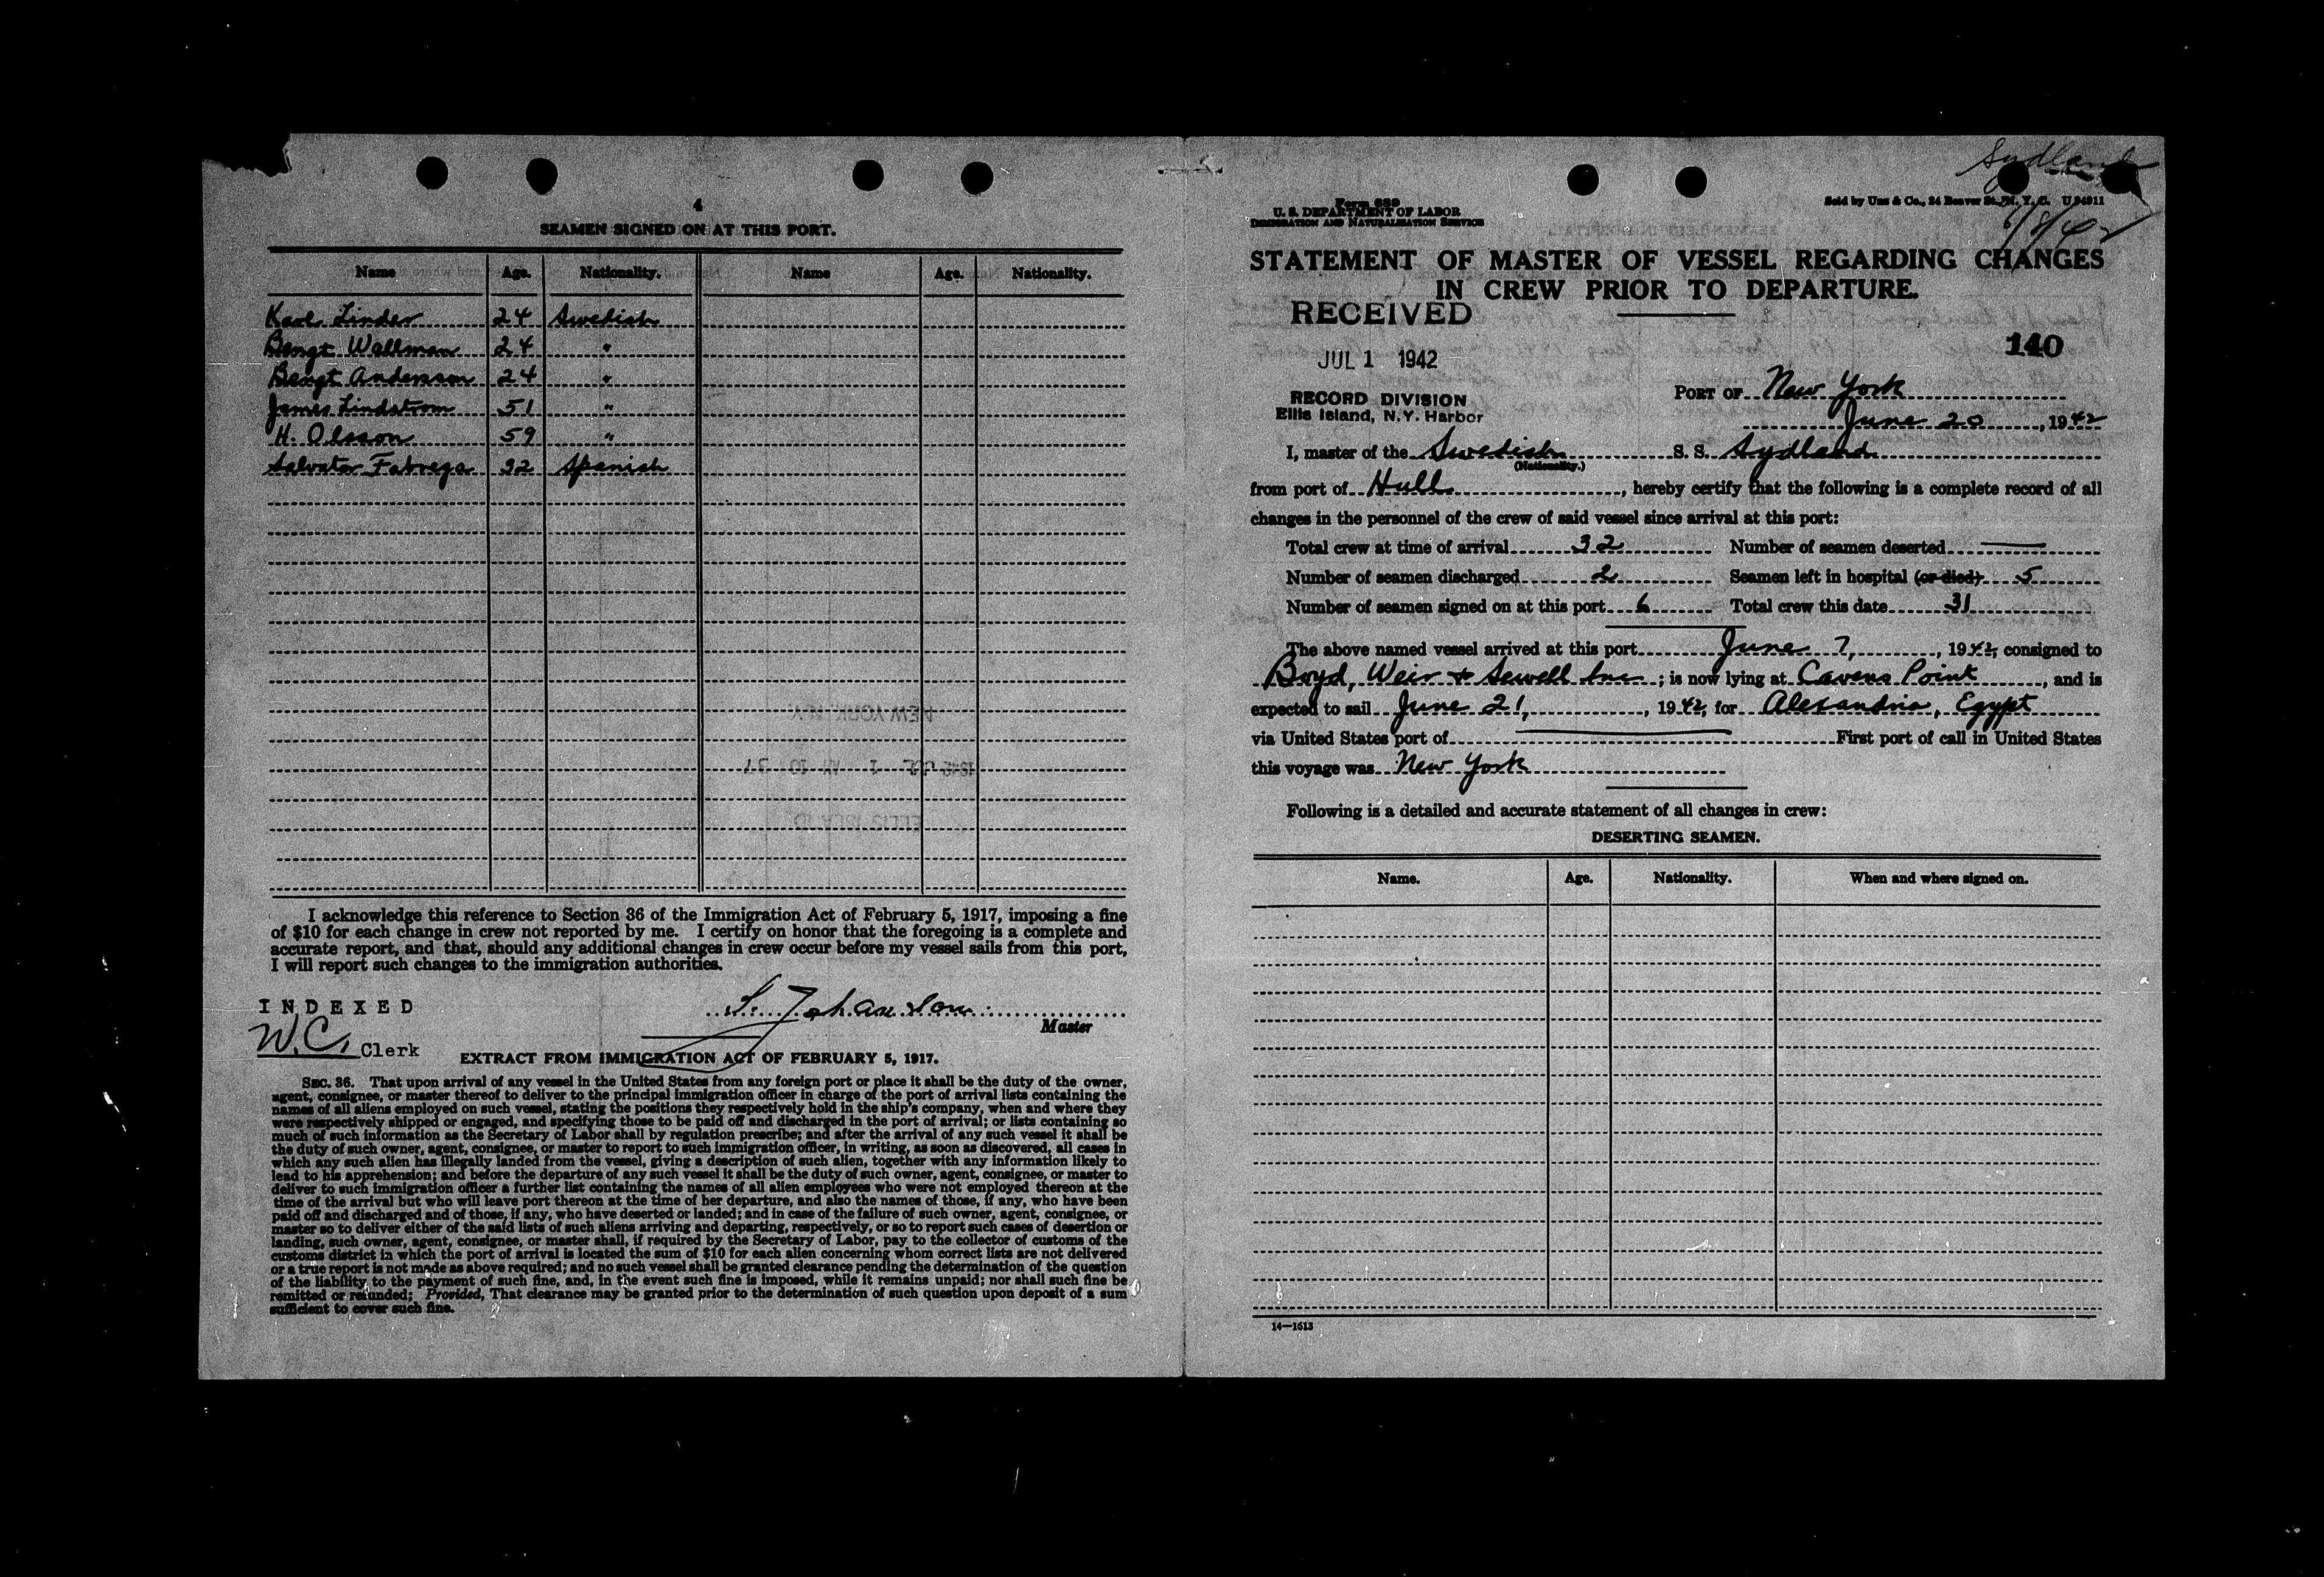 4
SEAMEN SIGNED ON AT THIS PORT.
Name Age. Nationality. Name Age. Nationality.
Karl Linder 24 Swedish
Bengt Wallman 24 "
Bengt Andersson 24 "
James Lindstrom 51 "
H. Olsson 59 "
Salvator Fabrega 32 Spanish
I acknowledge this reference to Section 36 of the Immigration Act of February 5, 1917, imposing a fine
of $10 for each change in crew not reported by me. I certify on honor that the foregoing is a complete and
accurate report, and that, should any additional changes in crew occur before my vessel sails from this port,
I will report such changes to the immigration authorities.
S. Johansson
Master
INDEXED
W.C. Clerk
EXTRACT FROM IMMIGRATION ACT OF FEBRUARY 5, 1917.
SEC. 36. That upon arrival of any vessel in the United States from any foreign port or place it shall be the duty of the owner,
agent, consignee, or master thereof to deliver to the principal immigration officer in charge of the port of arrival lists containing the
names of all aliens employed on such vessel, stating the positions they respectively hold in the ship's company, when and where they
were respectively shipped or engaged, and specifying those to be paid off and discharged in the port of arrival; or lists containing so
much of such information as the Secretary of Labor shall by regulation prescribe; and after the arrival of any such vessel it shall be
the duty of such owner, agent, consignee, or master to report to such immigration officer, in writing, as soon as discovered, all cases in
which any such alien has illegally landed from the vessel, giving a description of such alien, together with any information likely to
lead to his apprehension; and before the departure of any such vessel it shall be the duty of such owner, agent, consignee, or master to
deliver to such immigration officer a further list containing the names of all alien employees who were not employed thereon at the
time of the arrival but who will leave port thereon at the time of her departure, and also the names of those, if any, who have been
paid off and discharged and of those, if any, who have deserted or landed; and in case of the failure of such owner, agent, consignee, or
master so to deliver either of the said lists of such aliens arriving and departing, respectively, or so to report such cases of desertion or
landing, such owner, agent, consignee, or master shall, if required by the Secretary of Labor, pay to the collector of customs of the
customs district in which the port of arrival is located the sum of $10 for each alien concerning whom correct lists are not delivered
or a true report is not made as above required; and no such vessel shall be granted clearance pending the determination of the question
of the liability to the payment of such fine, and, in the event such fine is imposed, while it remains unpaid; nor shall such fine be
remitted or refunded: Provided, That clearance may be granted prior to the determination of such question upon deposit of a sum
sufficient to cover such fine.
Sydland
Form 689
U. S. DEPARTMENT OF LABOR
IMMIGRATION AND NATURALIZATION SERVICE
Sold by Unz & Co., 24 Beaver St., N. Y. C. U 94911
6/8/42
STATEMENT OF MASTER OF VESSEL REGARDING CHANGES
IN CREW PRIOR TO DEPARTURE.
RECEIVED
JUL 1 1942
RECORD DIVISION
Ellis Island, N.Y. Harbor
140
PORT OF New York
June 20, 1942
I, master of the Swedish S. S. Sydland
(Nationality.)
from port of Hull, hereby certify that the following is a complete record of all
changes in the personnel of the crew of said vessel since arrival at this port:
Total crew at time of arrival 32 Number of seamen deserted —
Number of seamen discharged 2 Seamen left in hospital (or died) 5
Number of seamen signed on at this port 6 Total crew this date 31
The above named vessel arrived at this port June 7, 1942, consigned to
Boyd, Weir & Sewell Inc; is now lying at Cavens Point, and is
expected to sail June 21, 1942, for Alexandria, Egypt
via United States port of — First port of call in United States
this voyage was New York
Following is a detailed and accurate statement of all changes in crew:
DESERTING SEAMEN.
Name. Age. Nationality. When and where signed on.
14—1613